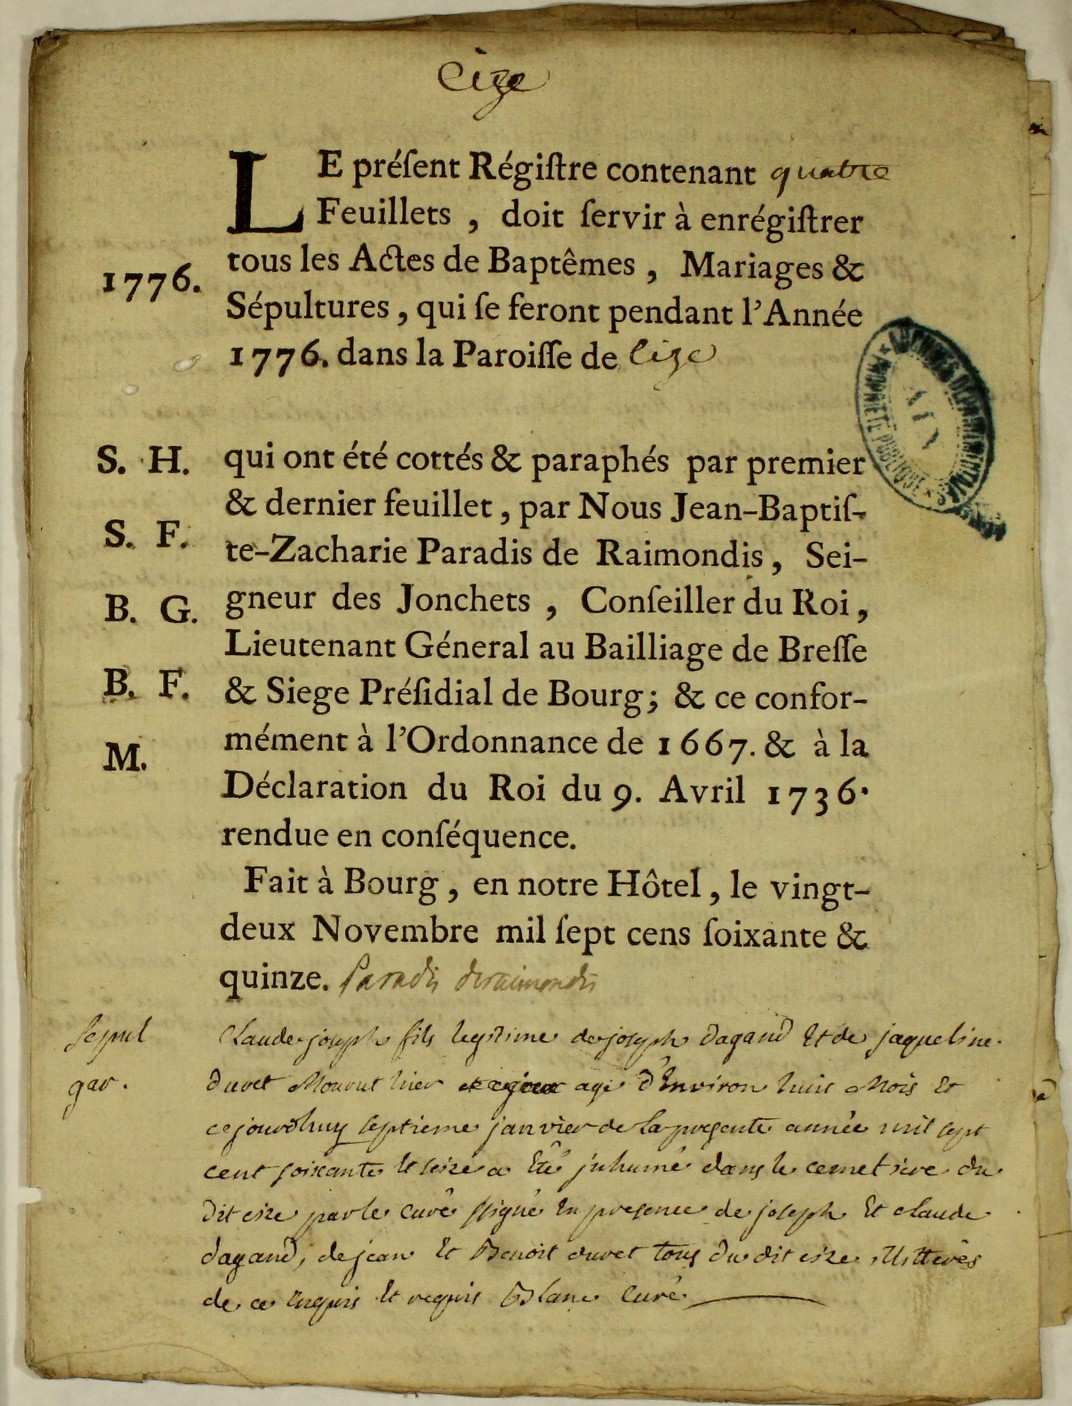 Cize
LE préſent Régiſtre contenant quatre
Feuillets , doit ſervir à enrégiſtrer
tous les Actes de Baptêmes , Mariages &
1776.
Sépultures , qui ſe feront pendant l'Année
1776. dans la Paroiſſe de Cize
ARCHIVES DÉPARTEMENTALES
AIN
PROPRIÉTÉ PUBLIQUE
S. H. qui ont été cottés & paraphés par premier
& dernier feuillet , par Nous Jean-Baptiſ-
S. F. te-Zacharie Paradis de Raimondis , Sei-
B. G. gneur des Jonchets , Conſeiller du Roi ,
Lieutenant Géneral au Bailliage de Breſſe
B. F. & Siege Préſidial de Bourg; & ce confor-
M. mément à l'Ordonnance de 1667. & à la
Déclaration du Roi du 9. Avril 1736.
rendue en conſéquence.
Fait à Bourg , en notre Hôtel , le vingt-
deux Novembre mil ſept cens ſoixante &
quinze. Paradis deraimondis
sepul
gar.
Claude joseph fils legitime de joseph dagand Et de jaqueline
duret Mourut hier agé d'Environ huit Mois Et
cejourdhuy septieme janvier de la presente année mil sept
cent soixante Et seize a Eté juhumé dans le cemetiere du
dit cize par le curé ssigné En presence de joseph Et claude
dagand, de jean Et Benoit duret tous du dit cize Illiterés
de ce Enquis Et requis Blanc Curé